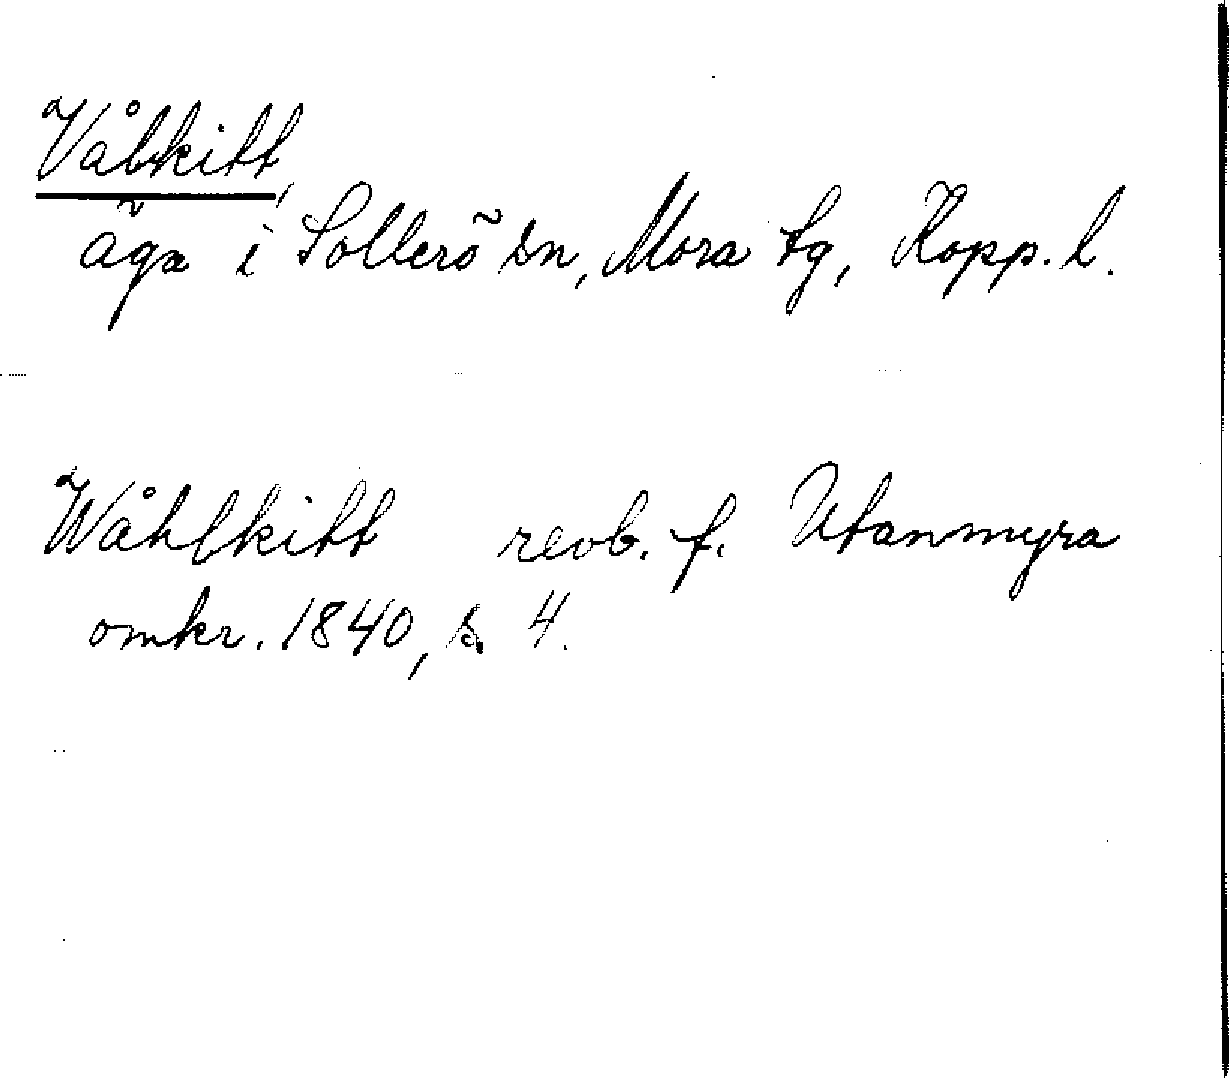 Vålkitt,
äga i Sollerö sn, Mora tg, Kopp. l.
Wåhlkitt revb. f. Utanmyra
omkr. 1840, s. 4.